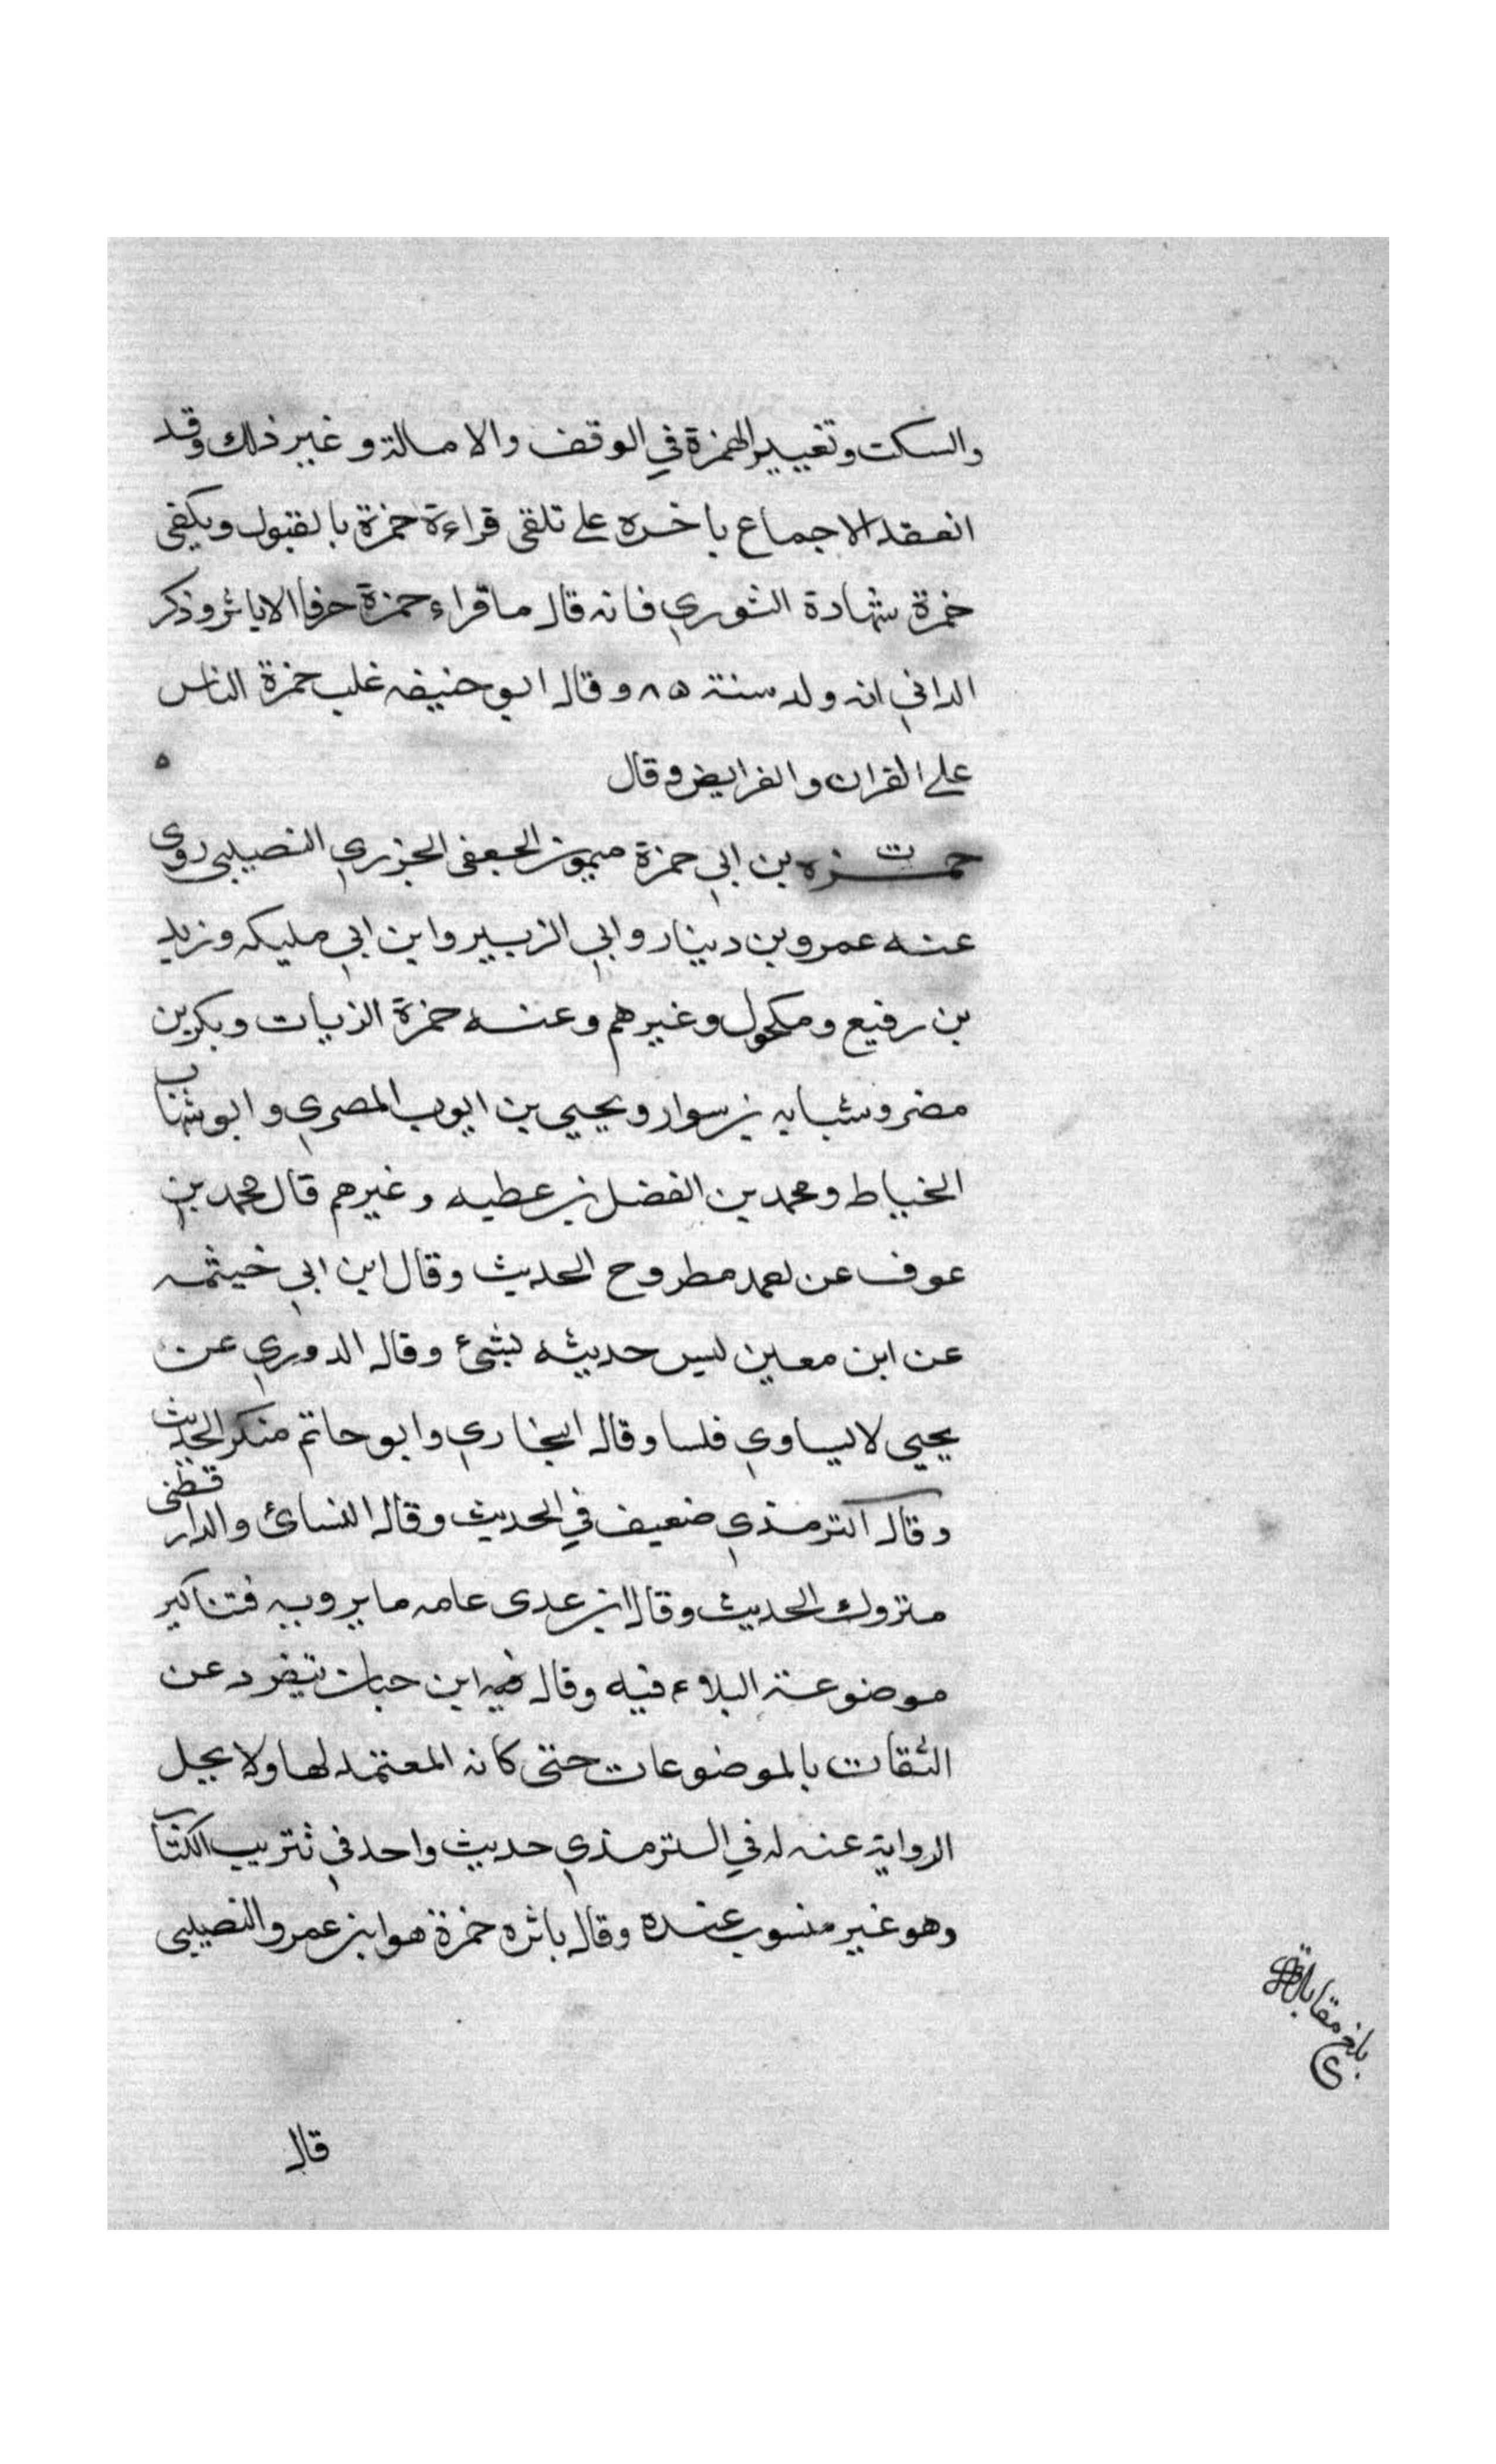 والسكت وتغيير الهمزة في الوقف والامالة وغير ذلك وقد
انعقد الاجماع باخره على تلقى قراءة حمزة بالقبول ويكفى
حمزة شهادة الثوري فانه قال ما قراء حمزة حرفا الا باثر وذكر
الداني انه ولد سنة ٨٥ وقال ابو حنيفه غلب حمزة الناس
على القران والفرايض وقال ٥
حمزه ت بن ابي حمزة ميمون الجعفى الجزري النصيبى روى
عنه عمرو بن دينار وابي الزبير وابن ابي مليكه وزيد
بن رفيع ومكحول وغيرهم وعنه حمزة الزيات وبكر بن
مضر وشبابه بن سوار ويحيى بن ايوب المصري وابو شهاب
الخياط ومحمد بن الفضل بن عطيه وغيرهم قال محمد بن
عوف عن احمد مطروح الحديث وقال ابن ابي خيثمه
عن ابن معين ليس حديثه بشئ وقال الدوري عن
يحيى لا يساوي فلسا وقال البخاري وابو حاتم منكر الحديث
وقال الترمذي ضعيف في الحديث وقال النسائ والدارقطنى
متروك الحديث وقال ابن عدى عامه ما يرويه فتناكير
موضوعة البلاء فيه وقال ابن حبان يتفرد عن
الثقات بالموضوعات حتى كانه المعتمد لها ولا يحل
الرواية عنه له في الترمذي حديث واحد في تتريب الكتاب
وهو غير منسوب عنده وقال باثره حمزة هو ابن عمرو النصيبى
بلغ مقابلة
قال